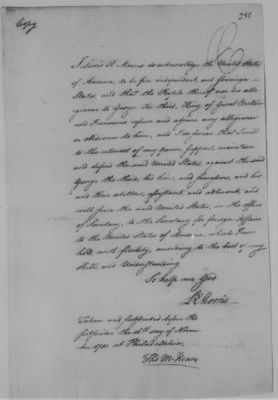 Copy
230
I Lewis R. Morris do acknowledge the United States
of America, to be free independent, and sovereign
States, and that the People thereof owe no alle-
giance to George the third, King of Great Britain
and I renounce refuse and abjure any allegiance
or obedience to him, and I do swear that I will
to the utmost of my power support, maintain
and defend the said United States, against the said
George the third, his heirs, and successors, and his
and their abettors, assistants and adherents, and
will serve the said United States, in the office
of Secretary, to the Secretary for foreign Affairs
to the United States of America, which I now
hold, with fidelity, according to the best of my
skill, and Understanding.
So help me God
LR Morris
Taken and subscribed before the
subscriber the day of Novem
ber 1781. at Philadelphia.
Tho McKean